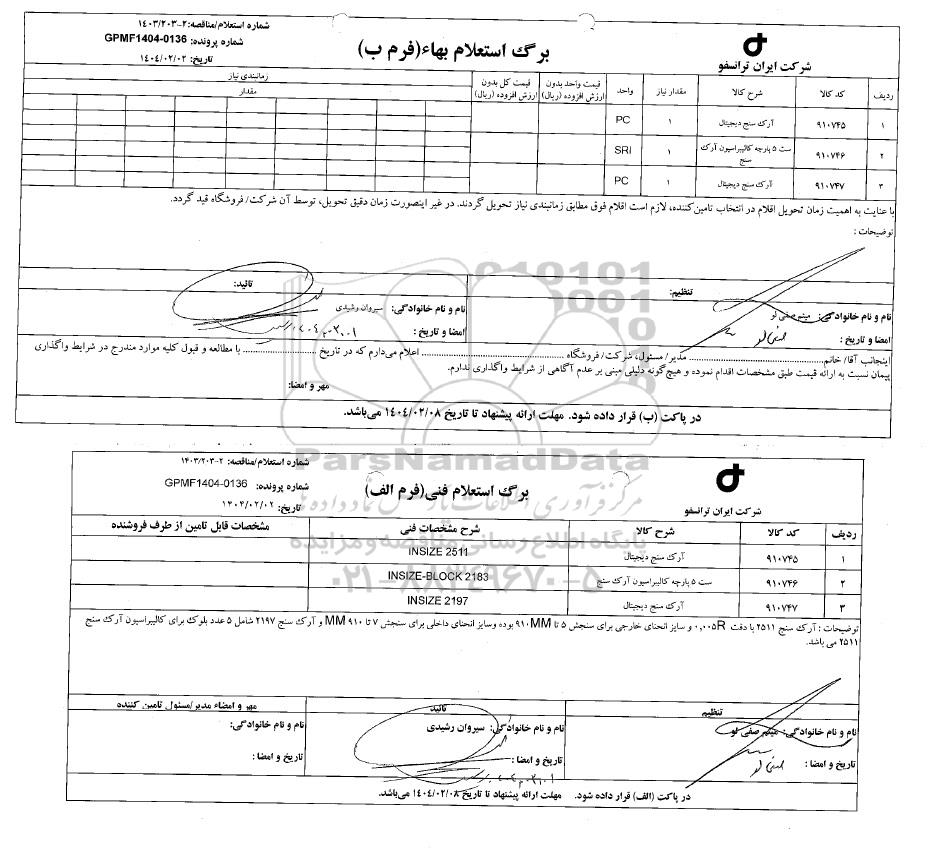 شماره استعلام/مناقصه: ۲-۱۴۰۳/۲۰۳
شماره پرونده: GPMF1404-0136
تاریخ: ۱۴۰۴/۰۲/۰۲
برگ استعلام بهاء(فرم ب)
شرکت ایران ترانسفو
ردیف کد کالا شرح کالا مقدار نیاز واحد قیمت واحد بدون ارزش افزوده (ریال) قیمت کل بدون ارزش افزوده (ریال) زمانبندی نیاز
مقدار
۱ ۹۱۰۷۴۵ آرک سنج دیجیتال ۱ PC
۲ ۹۱۰۷۴۶ ست ۵ پارچه کالیبراسیون آرک سنج ۱ SRI
۳ ۹۱۰۷۴۷ آرک سنج دیجیتال ۱ PC
با عنایت به اهمیت زمان تحویل اقلام در انتخاب تامین‌کننده، لازم است اقلام فوق مطابق زمانبندی نیاز تحویل گردند. در غیر اینصورت زمان دقیق تحویل، توسط آن شرکت/ فروشگاه قید گردد.
توضیحات :
تنظیم: تائید:
نام و نام خانوادگی: میثم صفی لو نام و نام خانوادگی: سیروان رشیدی
امضا و تاریخ : امضا و تاریخ :
اینجانب آقا/ خانم........................ مدیر/ مسئول، شرکت/ فروشگاه ........................ اعلام می‌دارم که در تاریخ ........................ با مطالعه و قبول کلیه موارد مندرج در شرایط واگذاری
پیمان نسبت به ارائه قیمت طبق مشخصات اقدام نموده و هیچ‌گونه دلیلی مبنی بر عدم آگاهی از شرایط واگذاری ندارم. مهر و امضا:
در پاکت (ب) قرار داده شود. مهلت ارائه پیشنهاد تا تاریخ ۱۴۰۴/۰۲/۰۸ می‌باشد.
ParsNamadData
مرکز فرآوری اطلاعات پارس نماد داده ها
پایگاه اطلاع رسانی مناقصه و مزایده
۰۲۱-۸۸۳۴۹۶۷۰-۵
شماره استعلام/مناقصه: ۲-۱۴۰۳/۲۰۳
شماره پرونده: GPMF1404-0136
تاریخ: ۱۴۰۴/۰۲/۰۲
برگ استعلام فنی(فرم الف)
شرکت ایران ترانسفو
ردیف کد کالا شرح کالا شرح مشخصات فنی مشخصات قابل تامین از طرف فروشنده
۱ ۹۱۰۷۴۵ آرک سنج دیجیتال INSIZE 2511
۲ ۹۱۰۷۴۶ ست ۵ پارچه کالیبراسیون آرک سنج INSIZE-BLOCK 2183
۳ ۹۱۰۷۴۷ آرک سنج دیجیتال INSIZE 2197
توضیحات : آرک سنج ۲۵۱۱ با دقت ۰,۰۰۵R و سایز انحنای خارجی برای سنجش ۵ تا ۹۱۰MM بوده وسایز انحنای داخلی برای سنجش ۷ تا ۹۱۰ MM و آرک سنج ۲۱۹۷ شامل ۵ عدد بلوک برای کالیبراسیون آرک سنج
۲۵۱۱ می باشد.
تنظیم تائید مهر و امضاء مدیر/مسئول تامین کننده
نام و نام خانوادگی: میثم صفی لو نام و نام خانوادگی: سیروان رشیدی نام و نام خانوادگی:
تاریخ و امضا : تاریخ و امضا : تاریخ و امضا :
در پاکت (الف) قرار داده شود. مهلت ارائه پیشنهاد تا تاریخ ۱۴۰۴/۰۲/۰۸ می‌باشد.